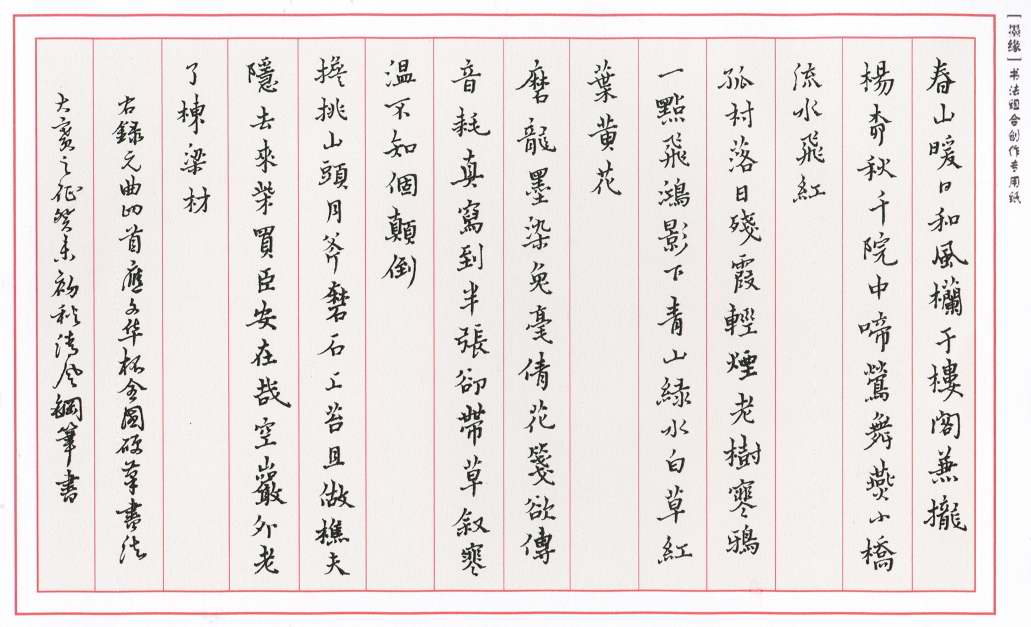 [墨缘]书法组合创作专用纸
春山暖日和風欄于樓閣兼攏
楊秋千院中啼鶯舞燕小橋
流水飛紅
孤村落日殘霞輕煙老樹寒鴉
一點飛鴻影下青山綠水白草紅
葉黄花
磨龍墨染兔毫倩花箋欲傳
音耗真寫到半張卻帶草叙寒
温不知個顛倒
擔挑山頭月斧磨石上苔且做樵夫
隱去來柴買臣安在哉空巖外老
了棟梁材
右錄元曲四首應文华杯全國硬筆書法
大賽之征癸未初秋清風鋼筆書